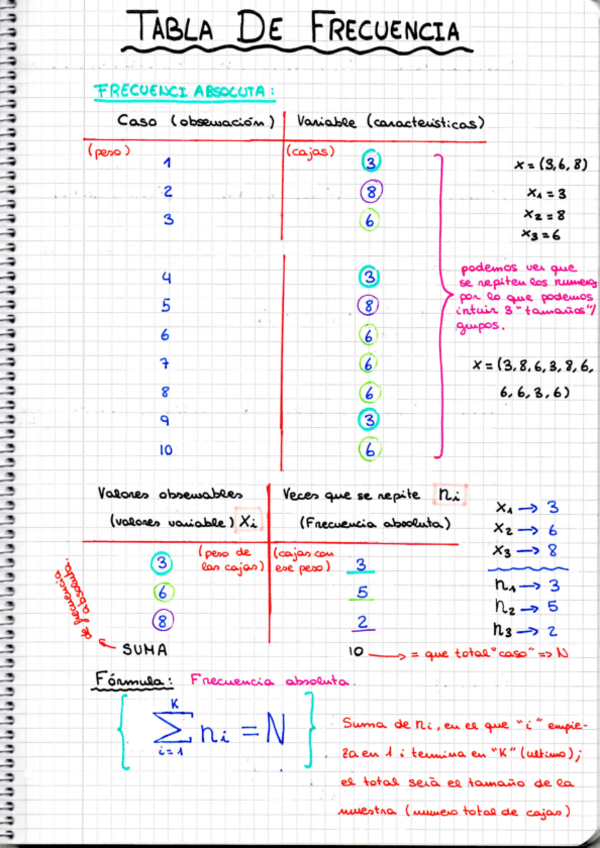 TABLA DE FRECUENCIA
FRECUENCI ABSOLUTA:
Caso (observación) Variable (características)
(peso) (cajas)
1 3 x = (3,6,8)
2 8 x1 = 3
3 6 x2 = 8
x3 = 6
4 3
5 8
6 6
7 6
8 6
9 3
10 6
podemos ver que
se repiten los numeros
por lo que podemos
intuir 3 "tamaños"/
grupos.
x = (3,8,6,3,8,6,
6,6,3,6)
Valores observables Veces que se repite ni
(valores variable) Xi (Frecuencia absoluta)
(peso de las cajas) (cajas con ese peso)
3 3
6 5
8 2
SUMA 10 → = que total "caso" => N
de frecuencia absoluta.
x1 → 3
x2 → 6
x3 → 8
n1 → 3
n2 → 5
n3 → 2
Fórmula: Frecuencia absoluta.
{ K ∑ i=1 ni = N }
Suma de ni, en el que "i" empie-
za en 1 i termina en "K" (ultimo);
el total serà el tamaño de la
muestra (numero total de cajas)